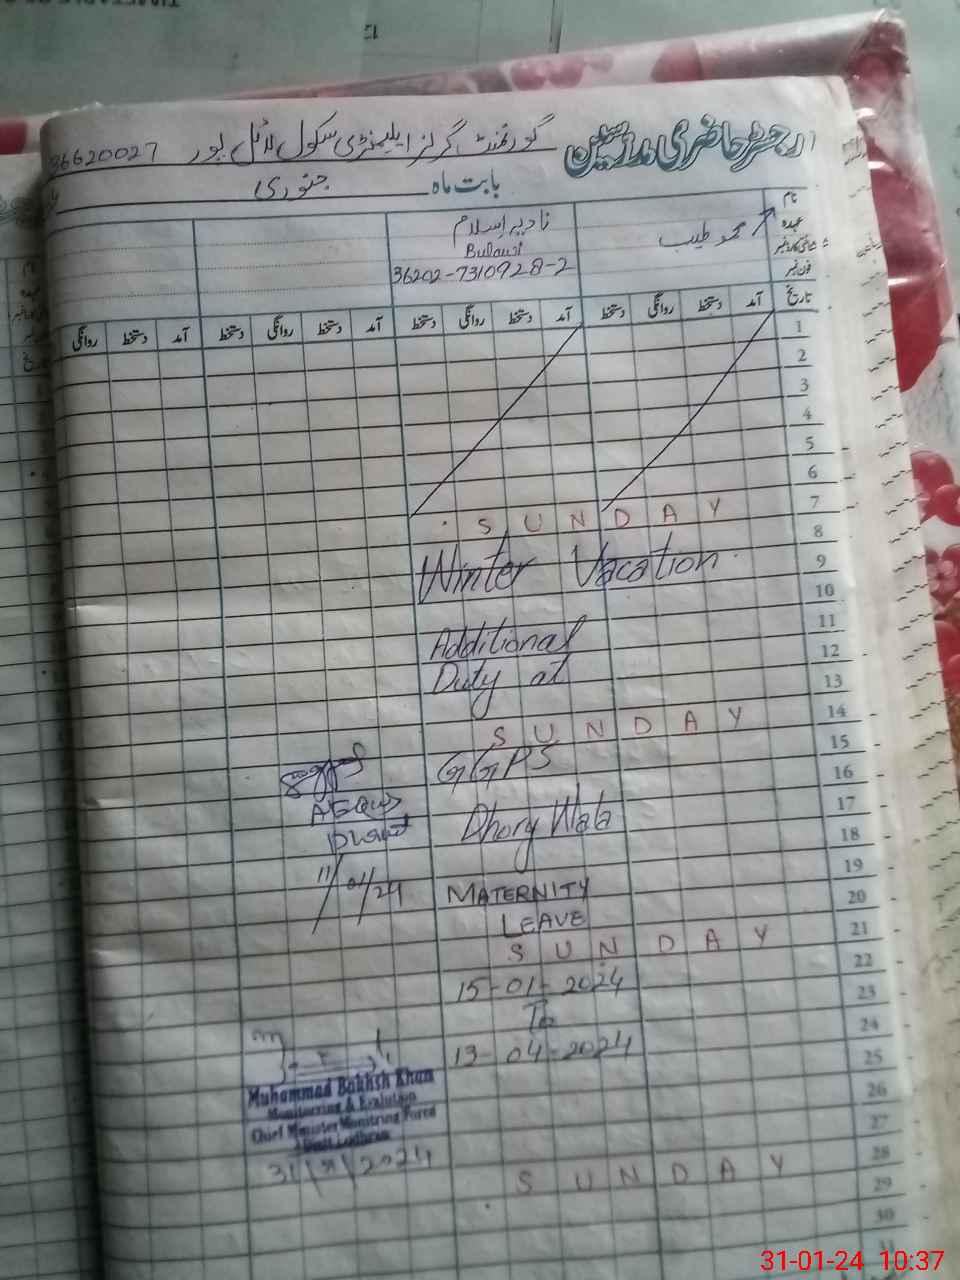 رجسٹر حاضری مدرسین گورنمنٹ گرلز ایلیمنٹری سکول لائل پور 36620027
بابت ماہ جنوری
نام
عہدہ
شناختی کارڈ نمبر
فون نمبر
محمد طیب
نادیہ اسلام
36202-7310928-2
تاریخ آمد دستخط روانگی دستخط آمد دستخط روانگی دستخط آمد دستخط روانگی دستخط آمد دستخط روانگی
1
2
3
4
5
6
7 SUNDAY
8
9 Winter Vacation
10
11
12 Additional
13 Duty at
14 SUNDAY
15
16 GGPS
17
18 Dhory Wala
19
20 MATERNITY
21 LEAVE
SUNDAY
22
23 15-01-2024
24 To
25 13-04-2024
26
27
28 SUNDAY
29
30
31
11/01/24
Muhammad Bakhsh Khan
Monitorring & Evalution
Chief Minister Monitring Force
Distt Lodhran
31/01/2024
31-01-24 10:37